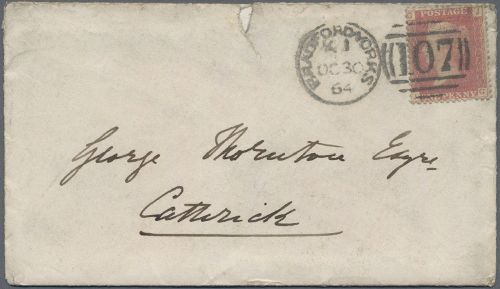 BRADFORD YORKS
K 1
OC 30
64
107
POSTAGE
PENNY
George Thornton Esqre
Catterick